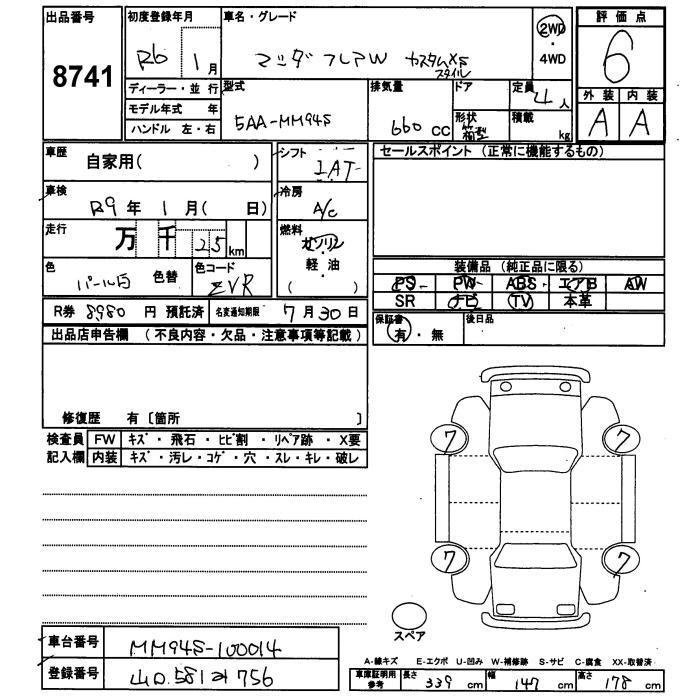 出品番号 初度登録年月 車名・グレード 2WD 評価点
8741 R6 1月 マツダ フレアW カスタムXS スタイル ・ 4WD 6
ディーラー・並行 型式 排気量 ドア 定員 4人 外装 内装
モデル年式 年 5AA-MM94S 660 CC 形状 箱型 積載 kg A A
ハンドル 左・右
車歴 自家用( ) シフト IAT セールスポイント (正常に機能するもの)
車検 R9年 1月( 日) 冷房 A/C
走行 万 千 25 km 燃料 ガソリン
軽・油
( )
色 パール白 色替 色コード ZVR 装備品 (純正品に限る)
PS PW ABS エアB AW
SR ナビ TV 本革
R券 8980 円 預託済 名変通知期限 7月30日 保証書 有・無 後日品
出品店申告欄 (不良内容・欠品・注意事項等記載)
修復歴 有〔箇所 〕
検査員 FW キズ・飛石・ヒビ割・リペア跡・X要
記入欄 内装 キズ・汚レ・コゲ・穴・スレ・キレ・破レ
7 7
7 7
スペア
車台番号 MM94S-100014
登録番号 581 756
A-線キズ E-エクボ U-凹み W-補修跡 S-サビ C-腐食 XX-取替済
車庫証明用参考 長さ 339 cm 幅 147 cm 高さ 178 cm